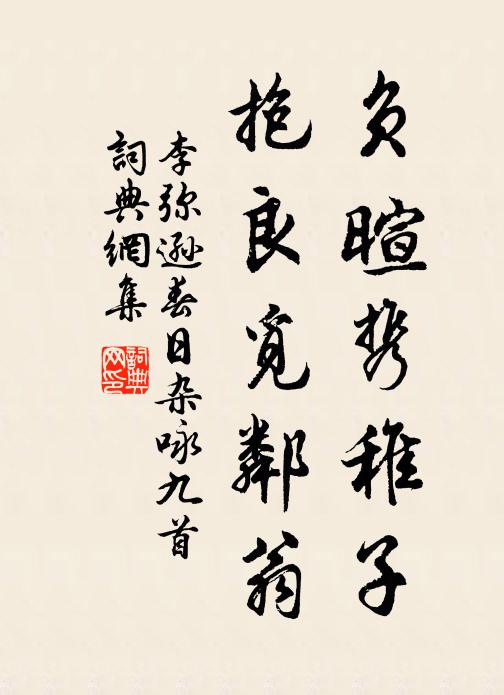 负暄携稚子
抱良觅鄰翁
李弥逊春日杂咏九首
詞典網集
詞典网印